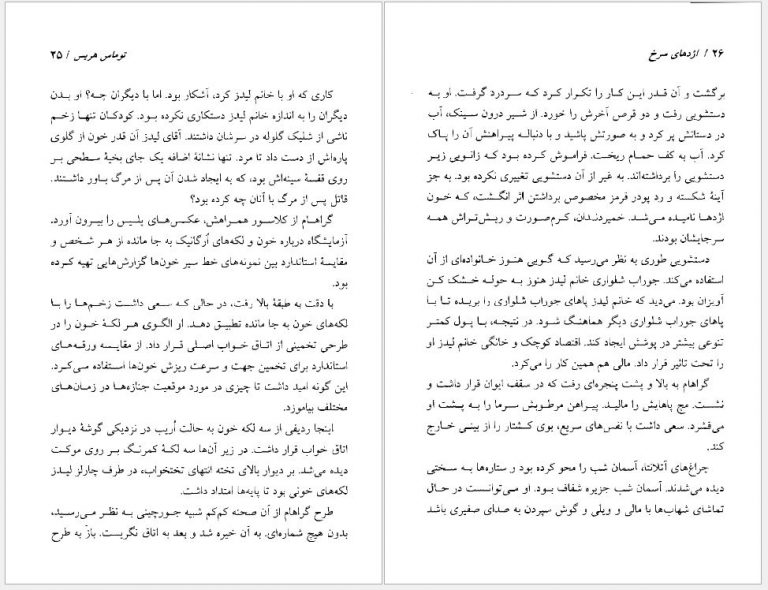 توماس هریس / ۲۵
کاری که او با خانم لیدز کرد، آشکار بود. اما با دیگران چه؟ او بدن
دیگران را به اندازه خانم لیدز دستکاری نکرده بود. کودکان تنها زخم
ناشی از شلیک گلوله در سرشان داشتند. آقای لیدز آن قدر خون از گلوی
پاره‌اش از دست داد تا مرد. تنها نشانهٔ اضافه یک جای بخیهٔ سطحی بر
روی قفسهٔ سینه‌اش بود، که به ایجاد شدن آن پس از مرگ باور داشتند.
قاتل پس از مرگ با آنان چه کرده بود؟
گراهام از کلاسور همراهش، عکس‌های پلیس را بیرون آورد.
آزمایشگاه درباره خون و لکه‌های اُرگانیک به جا مانده از هر شخص و
مقایسهٔ استاندارد بین نمونه‌های خط سیر خون‌ها گزارش‌هایی تهیه کرده
بود.
با دقت به طبقهٔ بالا رفت، در حالی که سعی داشت زخم‌ها را با
لکه‌های خون به جا مانده تطبیق دهد. او الگوی هر لکهٔ خون را در
طرحی تخمینی از اتاق خواب اصلی قرار داد. از مقایسه ورقه‌های
استاندارد برای تخمین جهت و سرعت ریزش خون‌ها استفاده می‌کرد.
این گونه امید داشت تا چیزی در مورد موقعیت جنازه‌ها در زمان‌های
مختلف بیاموزد.
اینجا ردیفی از سه لکه خون به حالت اُریب در نزدیکی گوشهٔ دیوار
اتاق خواب قرار داشت. در زیر آن‌ها سه لکهٔ کمرنگ بر روی موکت
دیده می‌شد. بر دیوار بالای تخته انتهای تختخواب، در طرف چارلز لیدز
لکه‌های خونی بود تا پایه‌ها امتداد داشت.
طرح گراهام از آن صحنه کم‌کم شبیه جورچینی به نظر می‌رسید،
بدون هیچ شماره‌ای. به آن خیره شد و بعد به اتاق نگریست. باز به طرح
۲۶ / اژدهای سرخ
برگشت و آن قدر این کار را تکرار کرد که سردرد گرفت. او به
دستشویی رفت و دو قرص آخرش را خورد. از شیر درون سینک، آب
در دستانش پر کرد و به صورتش پاشید و با دنباله پیراهنش آن را پاک
کرد. آب به کف حمام ریخت. فراموش کرده بود که زانویی زیر
دستشویی را برداشته‌اند. به غیر از آن دستشویی تغییری نکرده بود. به جز
آینهٔ شکسته و رد پودر قرمز مخصوص برداشتن اثر انگشت، که خون
اژدها نامیده می‌شد. خمیردندان، کرم‌صورت و ریش‌تراش همه
سرجایشان بودند.
دستشویی طوری به نظر می‌رسید که گویی هنوز خانواده‌ای از آن
استفاده می‌کند. جوراب شلواری خانم لیدز هنوز به حوله خشک کن
آویزان بود. می‌دید که خانم لیدز پاهای جوراب شلواری را بریده تا با
پاهای جوراب شلواری دیگر هماهنگ شود. در نتیجه، با پول کمتر
تنوعی بیشتر در پوشش ایجاد کند. اقتصاد کوچک و خانگی خانم لیدز او
را تحت تاثیر قرار داد. مالی هم همین کار را می‌کرد.
گراهام به بالا و پشت پنجره‌ای رفت که در سقف ایوان قرار داشت و
نشست. مچ پاهایش را مالید. پیراهن مرطوبش سرما را به پشت او
می‌فشرد. سعی داشت با نفس‌های سریع، بوی کشتار را از بینی خارج
کند.
چراغ‌های آتلانتا، آسمان شب را محو کرده بود و ستاره‌ها به سختی
دیده می‌شدند. آسمان شب جزیره شفاف بود. او می‌توانست در حال
تماشای شهاب‌ها با مالی و ویلی و گوش سپردن به صدای صفیری باشد